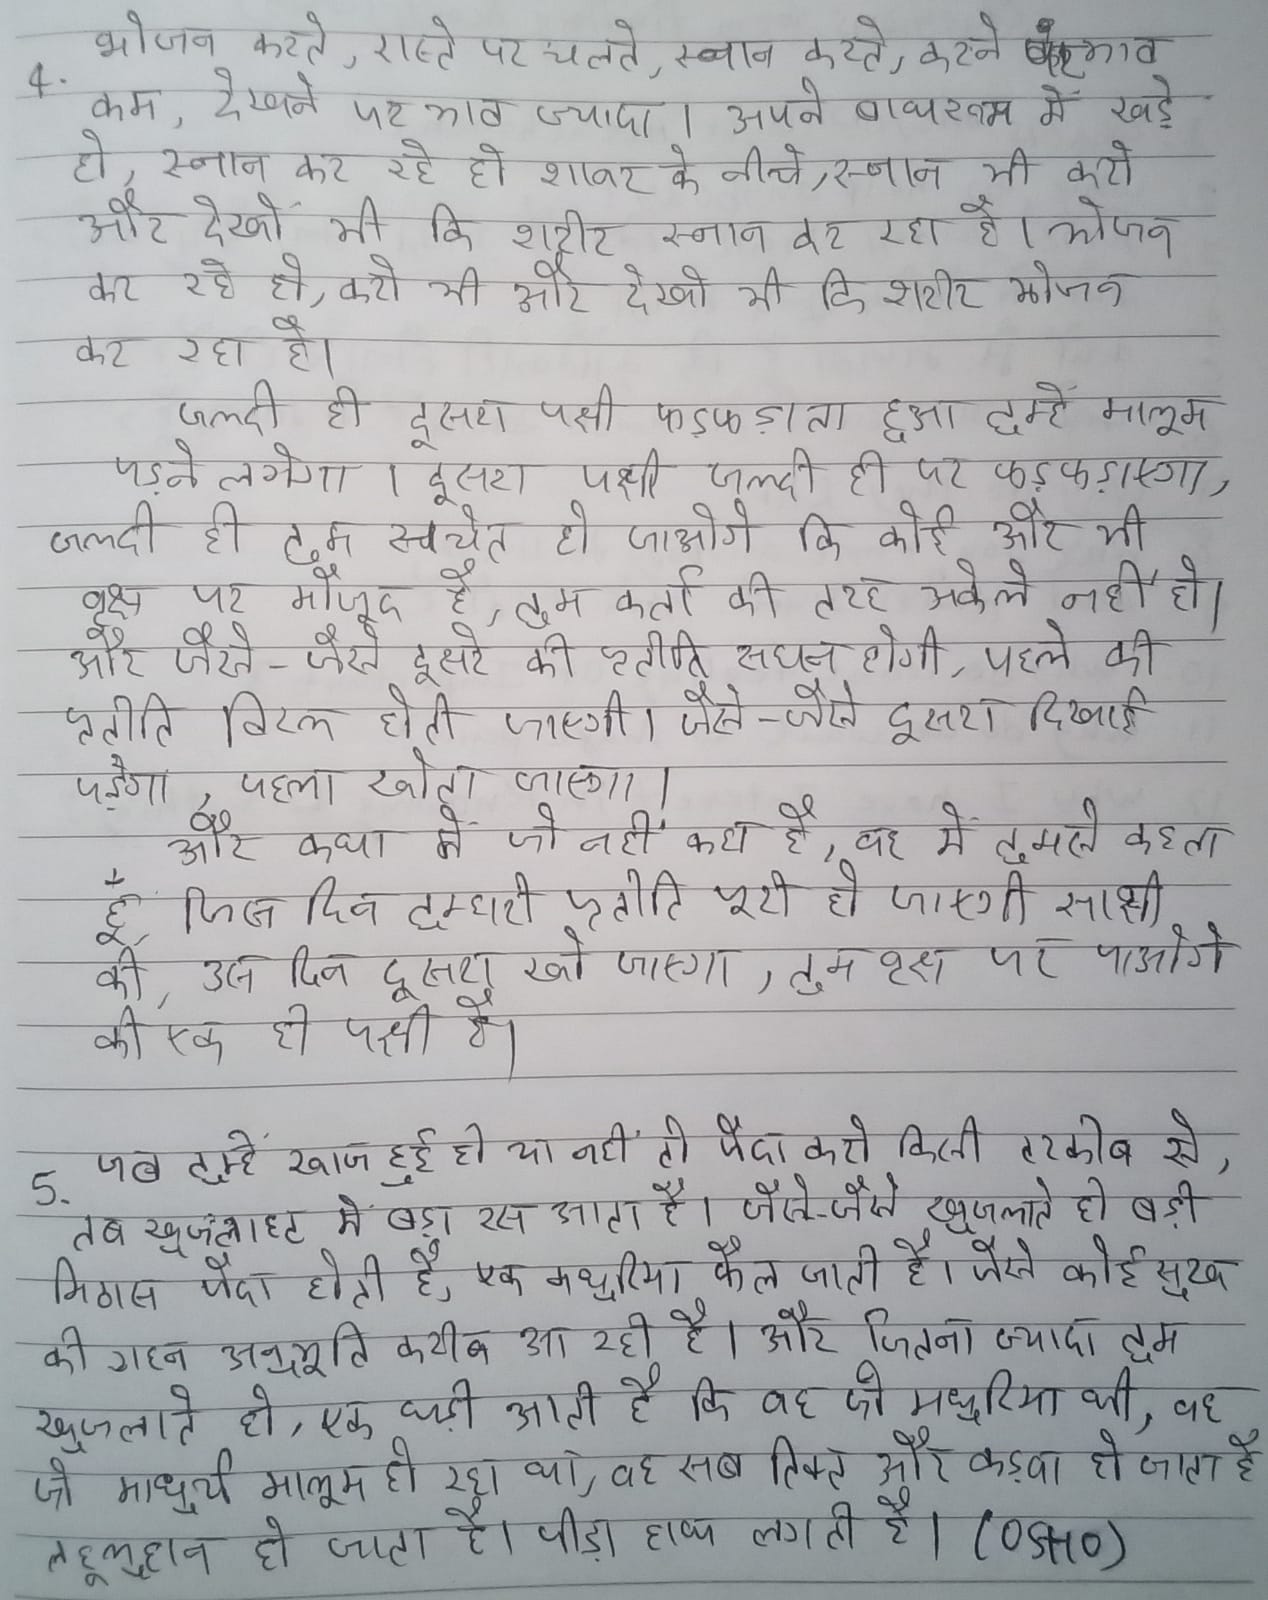 4. भोजन करते, रास्ते पर चलते, स्नान करते, करने पर भाव
कम, देखने पर भाव ज्यादा। अपने बाथरूम में खड़े
हो, स्नान कर रहे हो शावर के नीचे, स्नान भी करो
और देखो भी कि शरीर स्नान कर रहा है। भोजन
कर रहे हो, करो भी और देखो भी कि शरीर भोजन
कर रहा है।
जल्दी ही दूसरा पक्षी फड़फड़ाता हुआ तुम्हें मालूम
पड़ने लगेगा। दूसरा पक्षी जल्दी ही पर फड़फड़ाएगा,
जल्दी ही तुम सचेत हो जाओगे कि कोई और भी
वृक्ष पर मौजूद है, तुम कर्ता की तरह अकेले नहीं हो।
और जैसे-जैसे दूसरे की प्रतीति सघन होगी, पहले की
प्रतीति विरल होती जाएगी। जैसे-जैसे दूसरा दिखाई
पड़ेगा, पहला खोता जाएगा।
और कथा में जो नहीं कहा है, वह में तुमसे कहता
हूँ, जिस दिन तुम्हारी प्रतीति पूरी हो जाएगी साक्षी
की, उस दिन दूसरा खो जाएगा, तुम वृक्ष पर पाओगे
की एक ही पक्षी है।
5. जब तुम्हें खाज हुई हो या नहीं तो पैदा करो किसी तरकीब से,
तब खुजलाहट में बड़ा रस आता है। जैसे-जैसे खुजलाते हो बड़ी
मिठास पैदा होती है, एक मधुरिमा फैल जाती है। जैसे कोई सुख
की गहन अनुभूति करीब आ रही है। और जितना ज्यादा तुम
खुजलाते हो, एक घड़ी आती है कि वह जो मधुरिमा थी, वह
जो माधुर्य मालूम हो रहा था, वह सब तिक्त और कड़वा हो जाता है
लहूलुहान हो जाता है। पीड़ा हाथ लगती है। (OSHO)